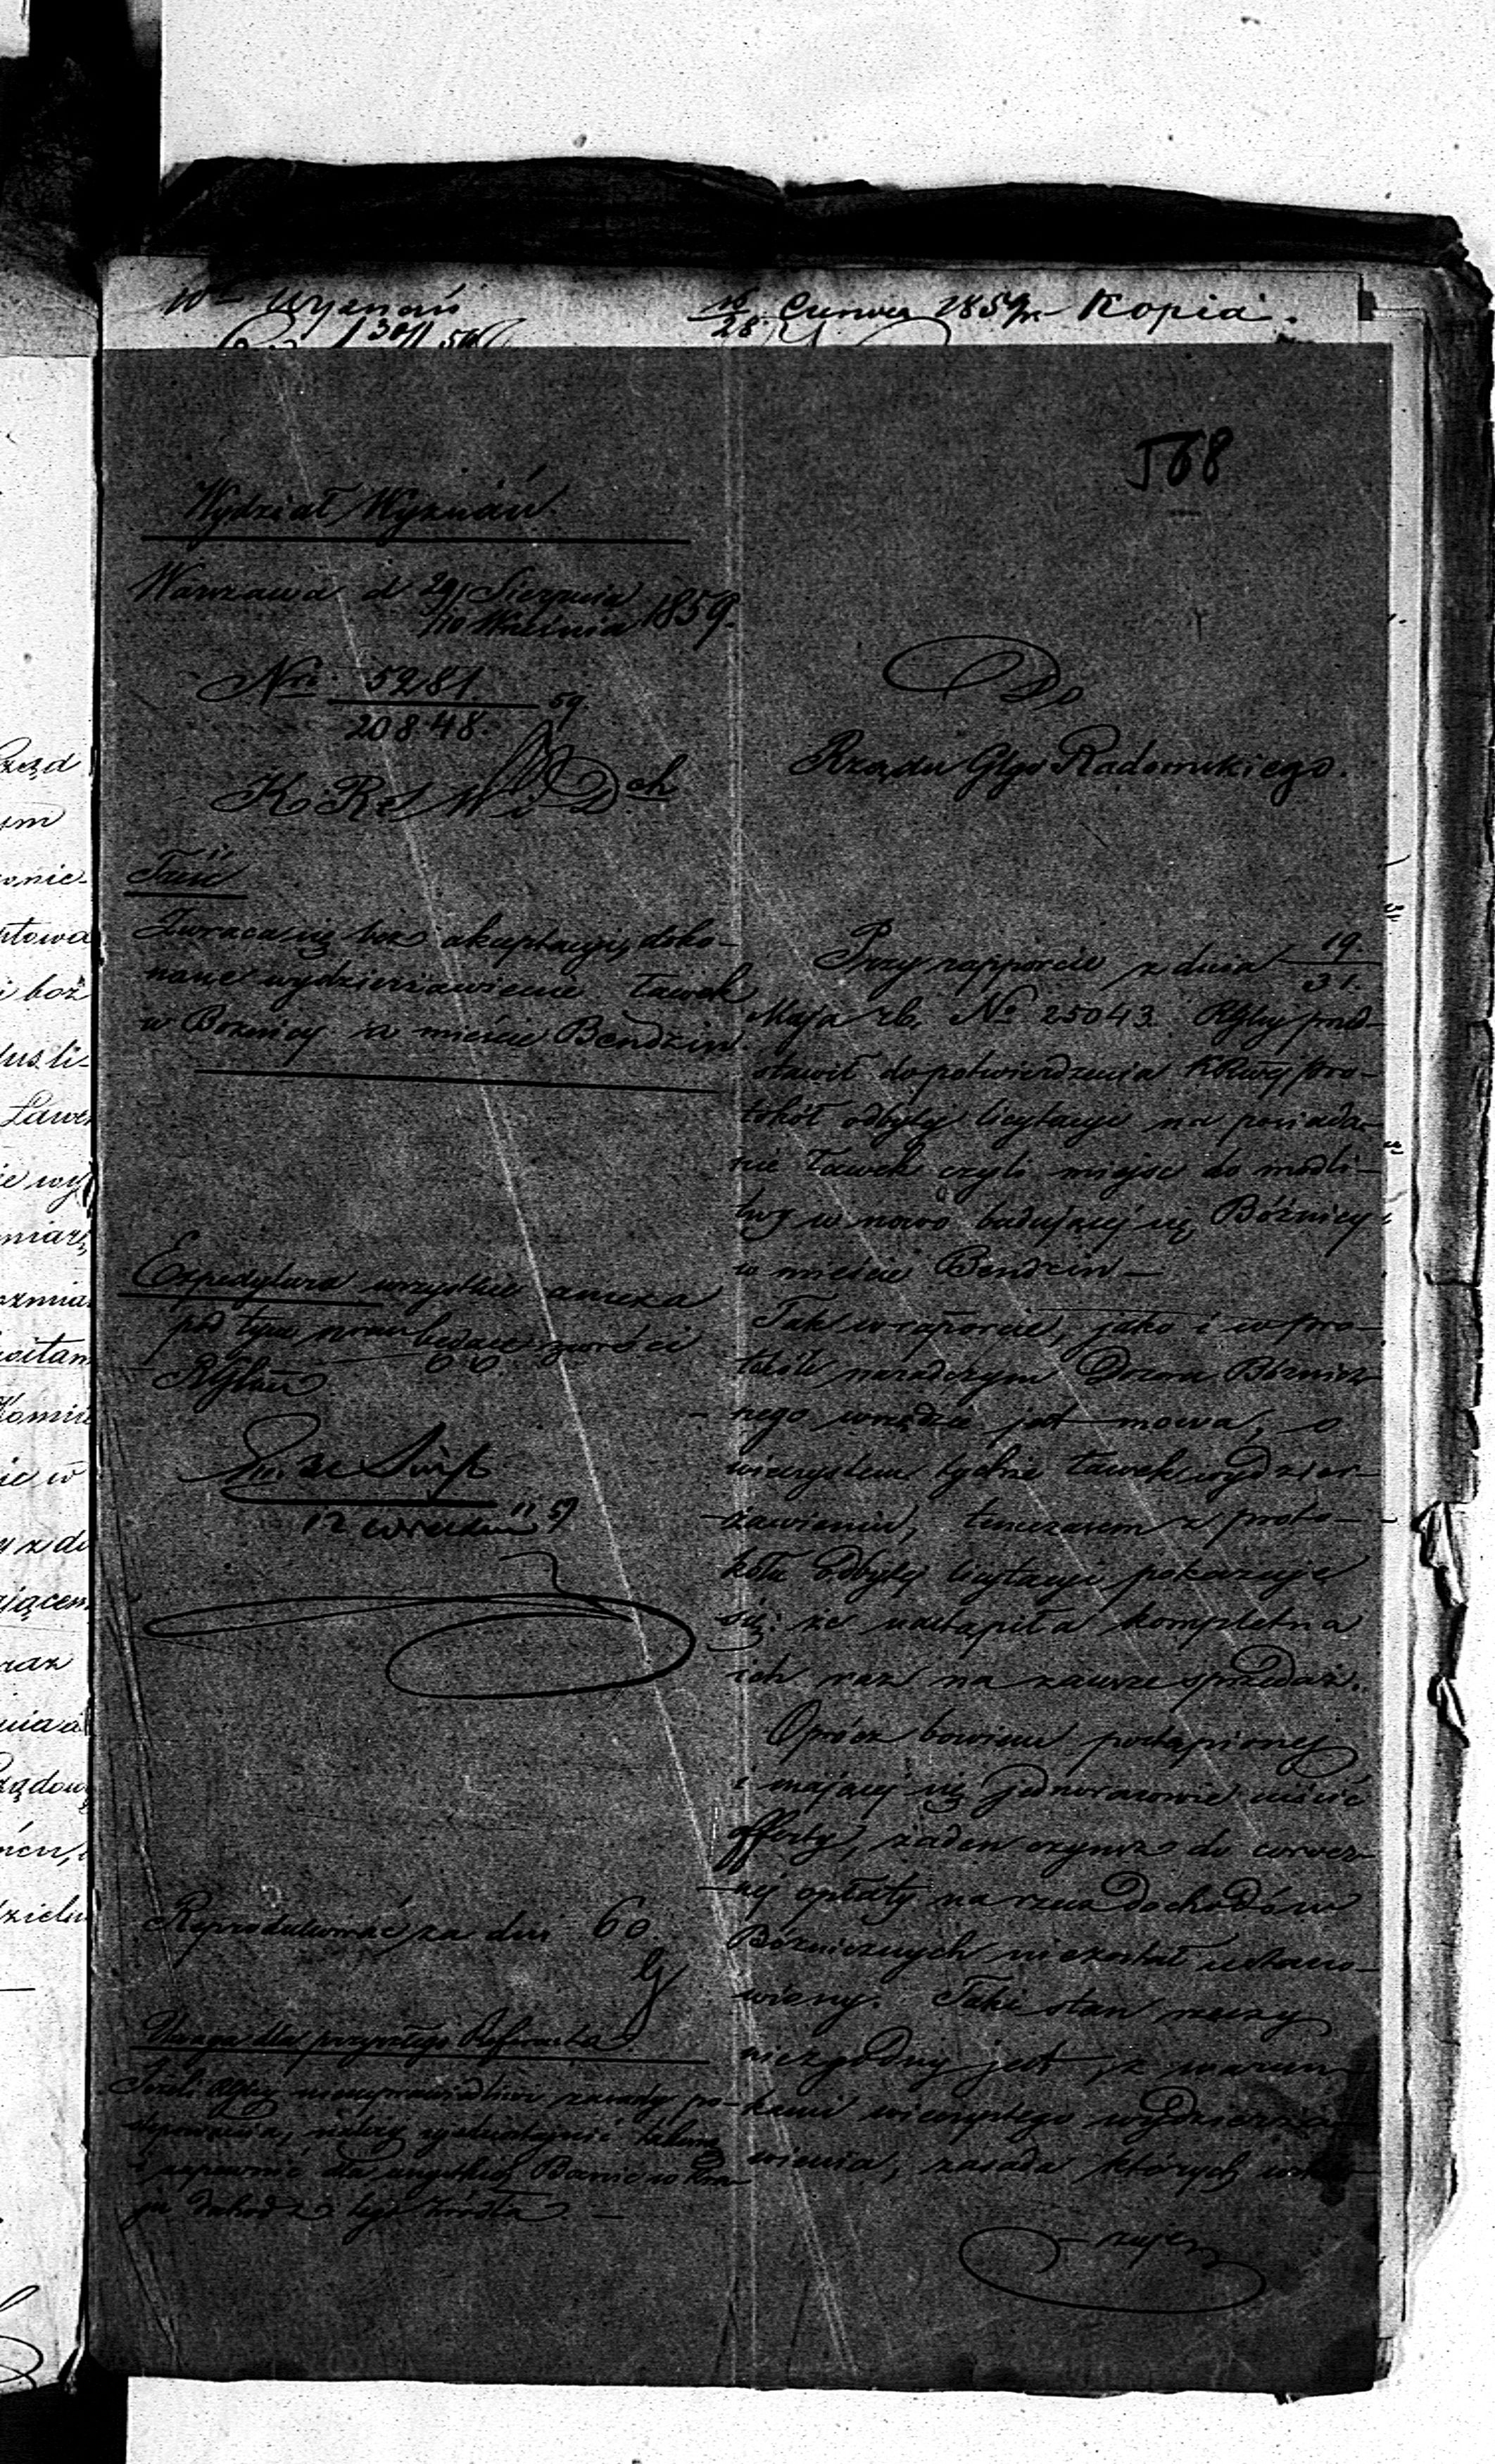 Wyznań
16/28 Czerwca 1859 r. Kopia.
568
Wydział Wyznań
Warszawa d 29 Sierpnia
/10 Września 1859.
Nro 5281
20848. 59
Do
Rządu Glgo Radomskiego.
Treść
Zwraca się bez akceptacyi, doko-
nane wydzierżawienie ławek
w Bożnicy w mieście Bendzin.
Expedytura wszystkie anexa
pod tym numerem będące zwróci
RGlmu.
12 września 59
Reprodukować za dni 60.
Uwaga dla przyszłego Referenta
Jeżeli RGlny nieusprawiedliwi zasady po-
stępowania, należy
i zapewnić dla wszystkich Bożnic w Kra-
ju dochód z tego źródła. —
Przy rapporcie z dnia 19./31.
Maja rb. No 25043. RGlny przed-
stawił do potwierdzenia KRwéj pro-
tokół odbytéj licytacyi na posiada-
nie ławek czyli miejsc do modli-
twy w nowo budującéj się Bóżnicy
w mieście Bendzin —
Tak w raporcie, jako i w pro-
tokóle naradczym Dozoru Bóżnicz-
nego wszędzie jest mowa, o
wieczystem tychże ławek wydzier-
żawieniu, tymczasem z proto-
kółu odbytéj licytacyi pokazuje
się: że nastąpiła kompletna
ich raz na zawsze sprzedaż.
Oprócz bowiem postąpionej
i mającej się jednorazowie uiścić
offerty, żaden czynsz do corocz-
nej opłaty na rzecz dochodów
Bóżnicznych nie został ustano-
wiony. Taki stan rzeczy
niezgodny jest z warun-
kami wieczystego wydzierża-
wienia, zasada których wska-
zuje